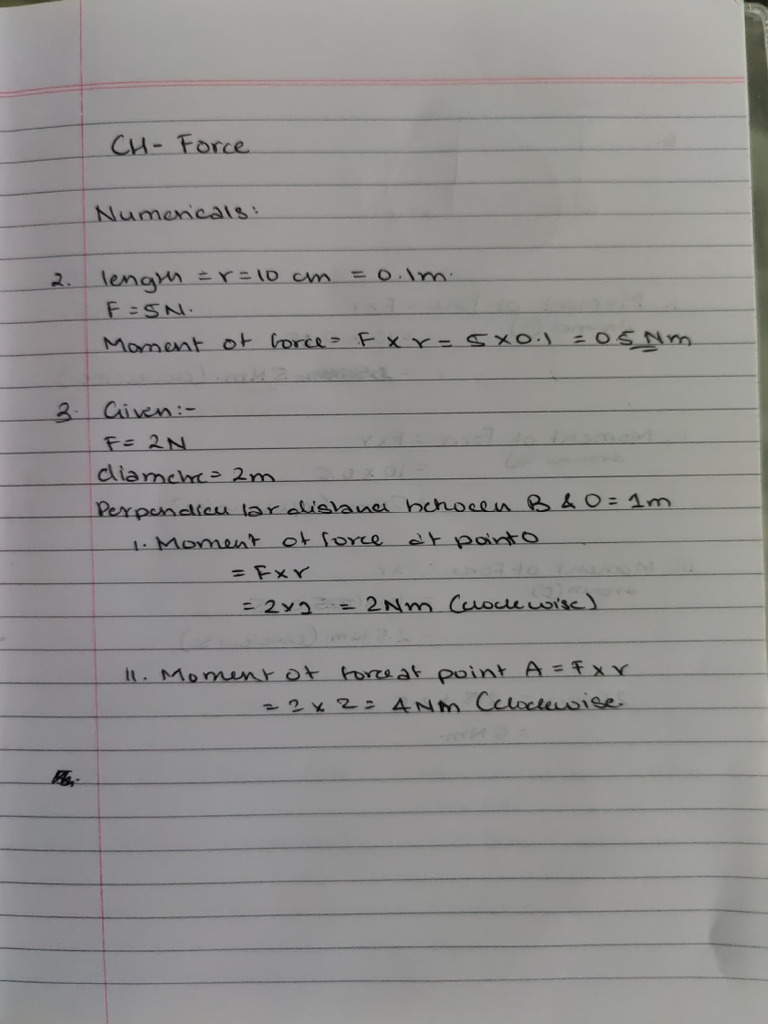 CH- Force
Numericals:
2. length = r = 10 cm = 0.1m.
F = 5N.
Moment of force = F x r = 5 x 0.1 = 0.5 Nm
3. Given:-
F = 2N
diameter = 2m
Perpendicular distance between B & O = 1m
i. Moment of force at point O
= F x r
= 2 x = 2Nm (clockwise)
ii. Moment of force at point A = F x r
= 2 x 2 = 4Nm (clockwise.